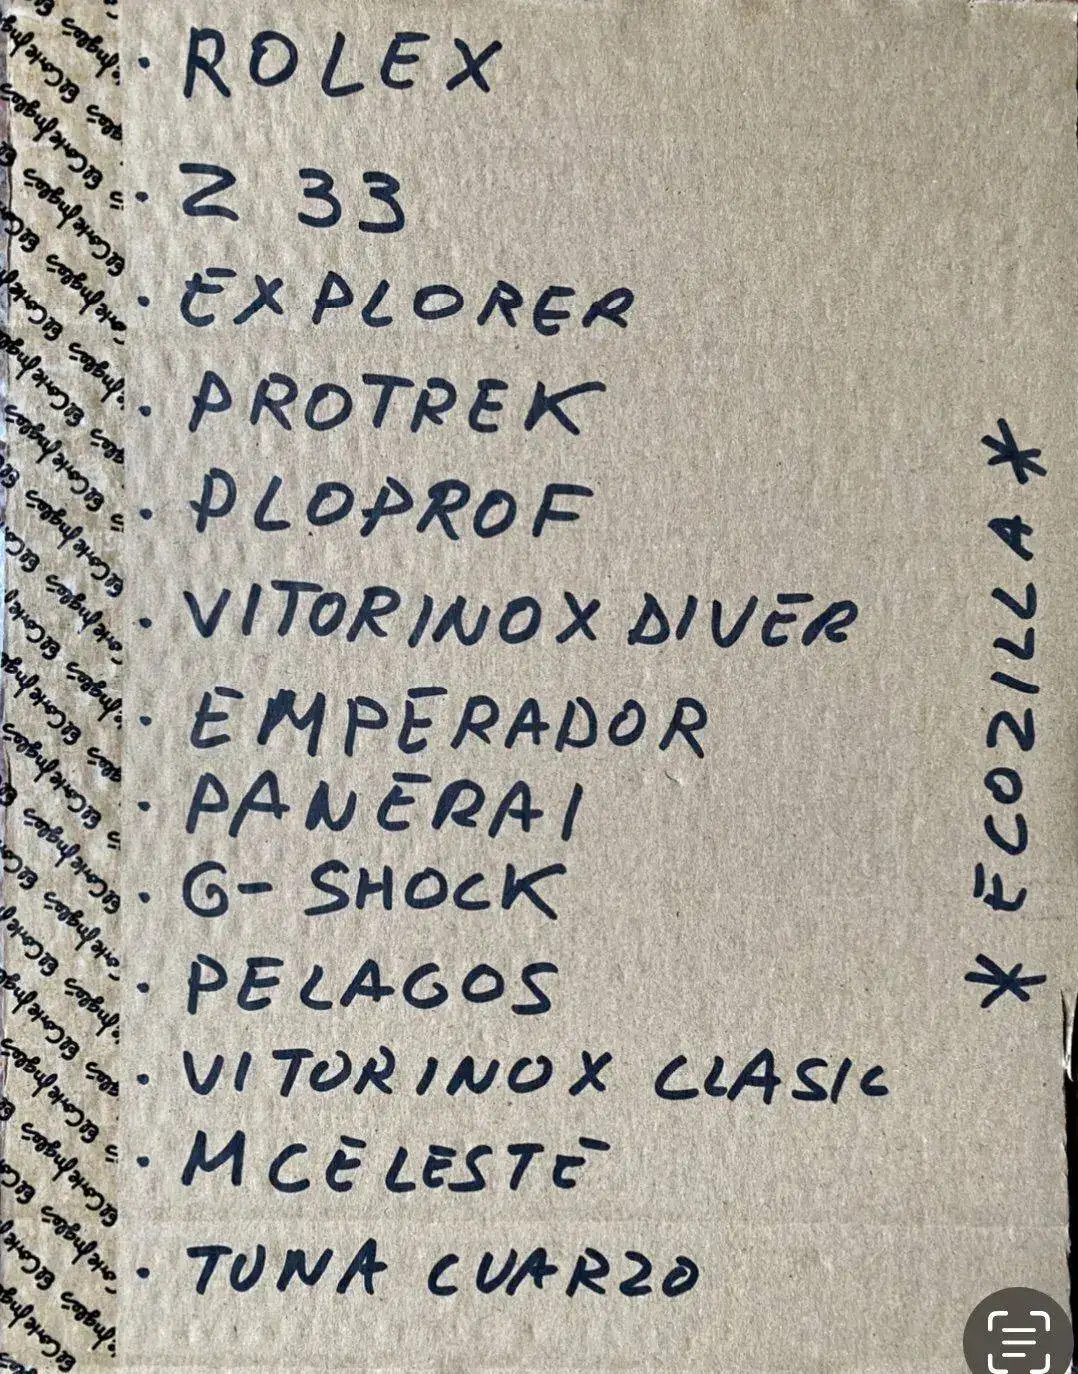 · ROLEX
· Z 33
· EXPLORER
· PROTREK
· PLOPROF
· VITORINOX DIVER
· EMPERADOR
· PANERAI
· G- SHOCK
· PELAGOS
· VITORINOX CLASIC
· MCELESTE
· TUNA CUARZO
* ECOZILLA *
El Corte Inglés